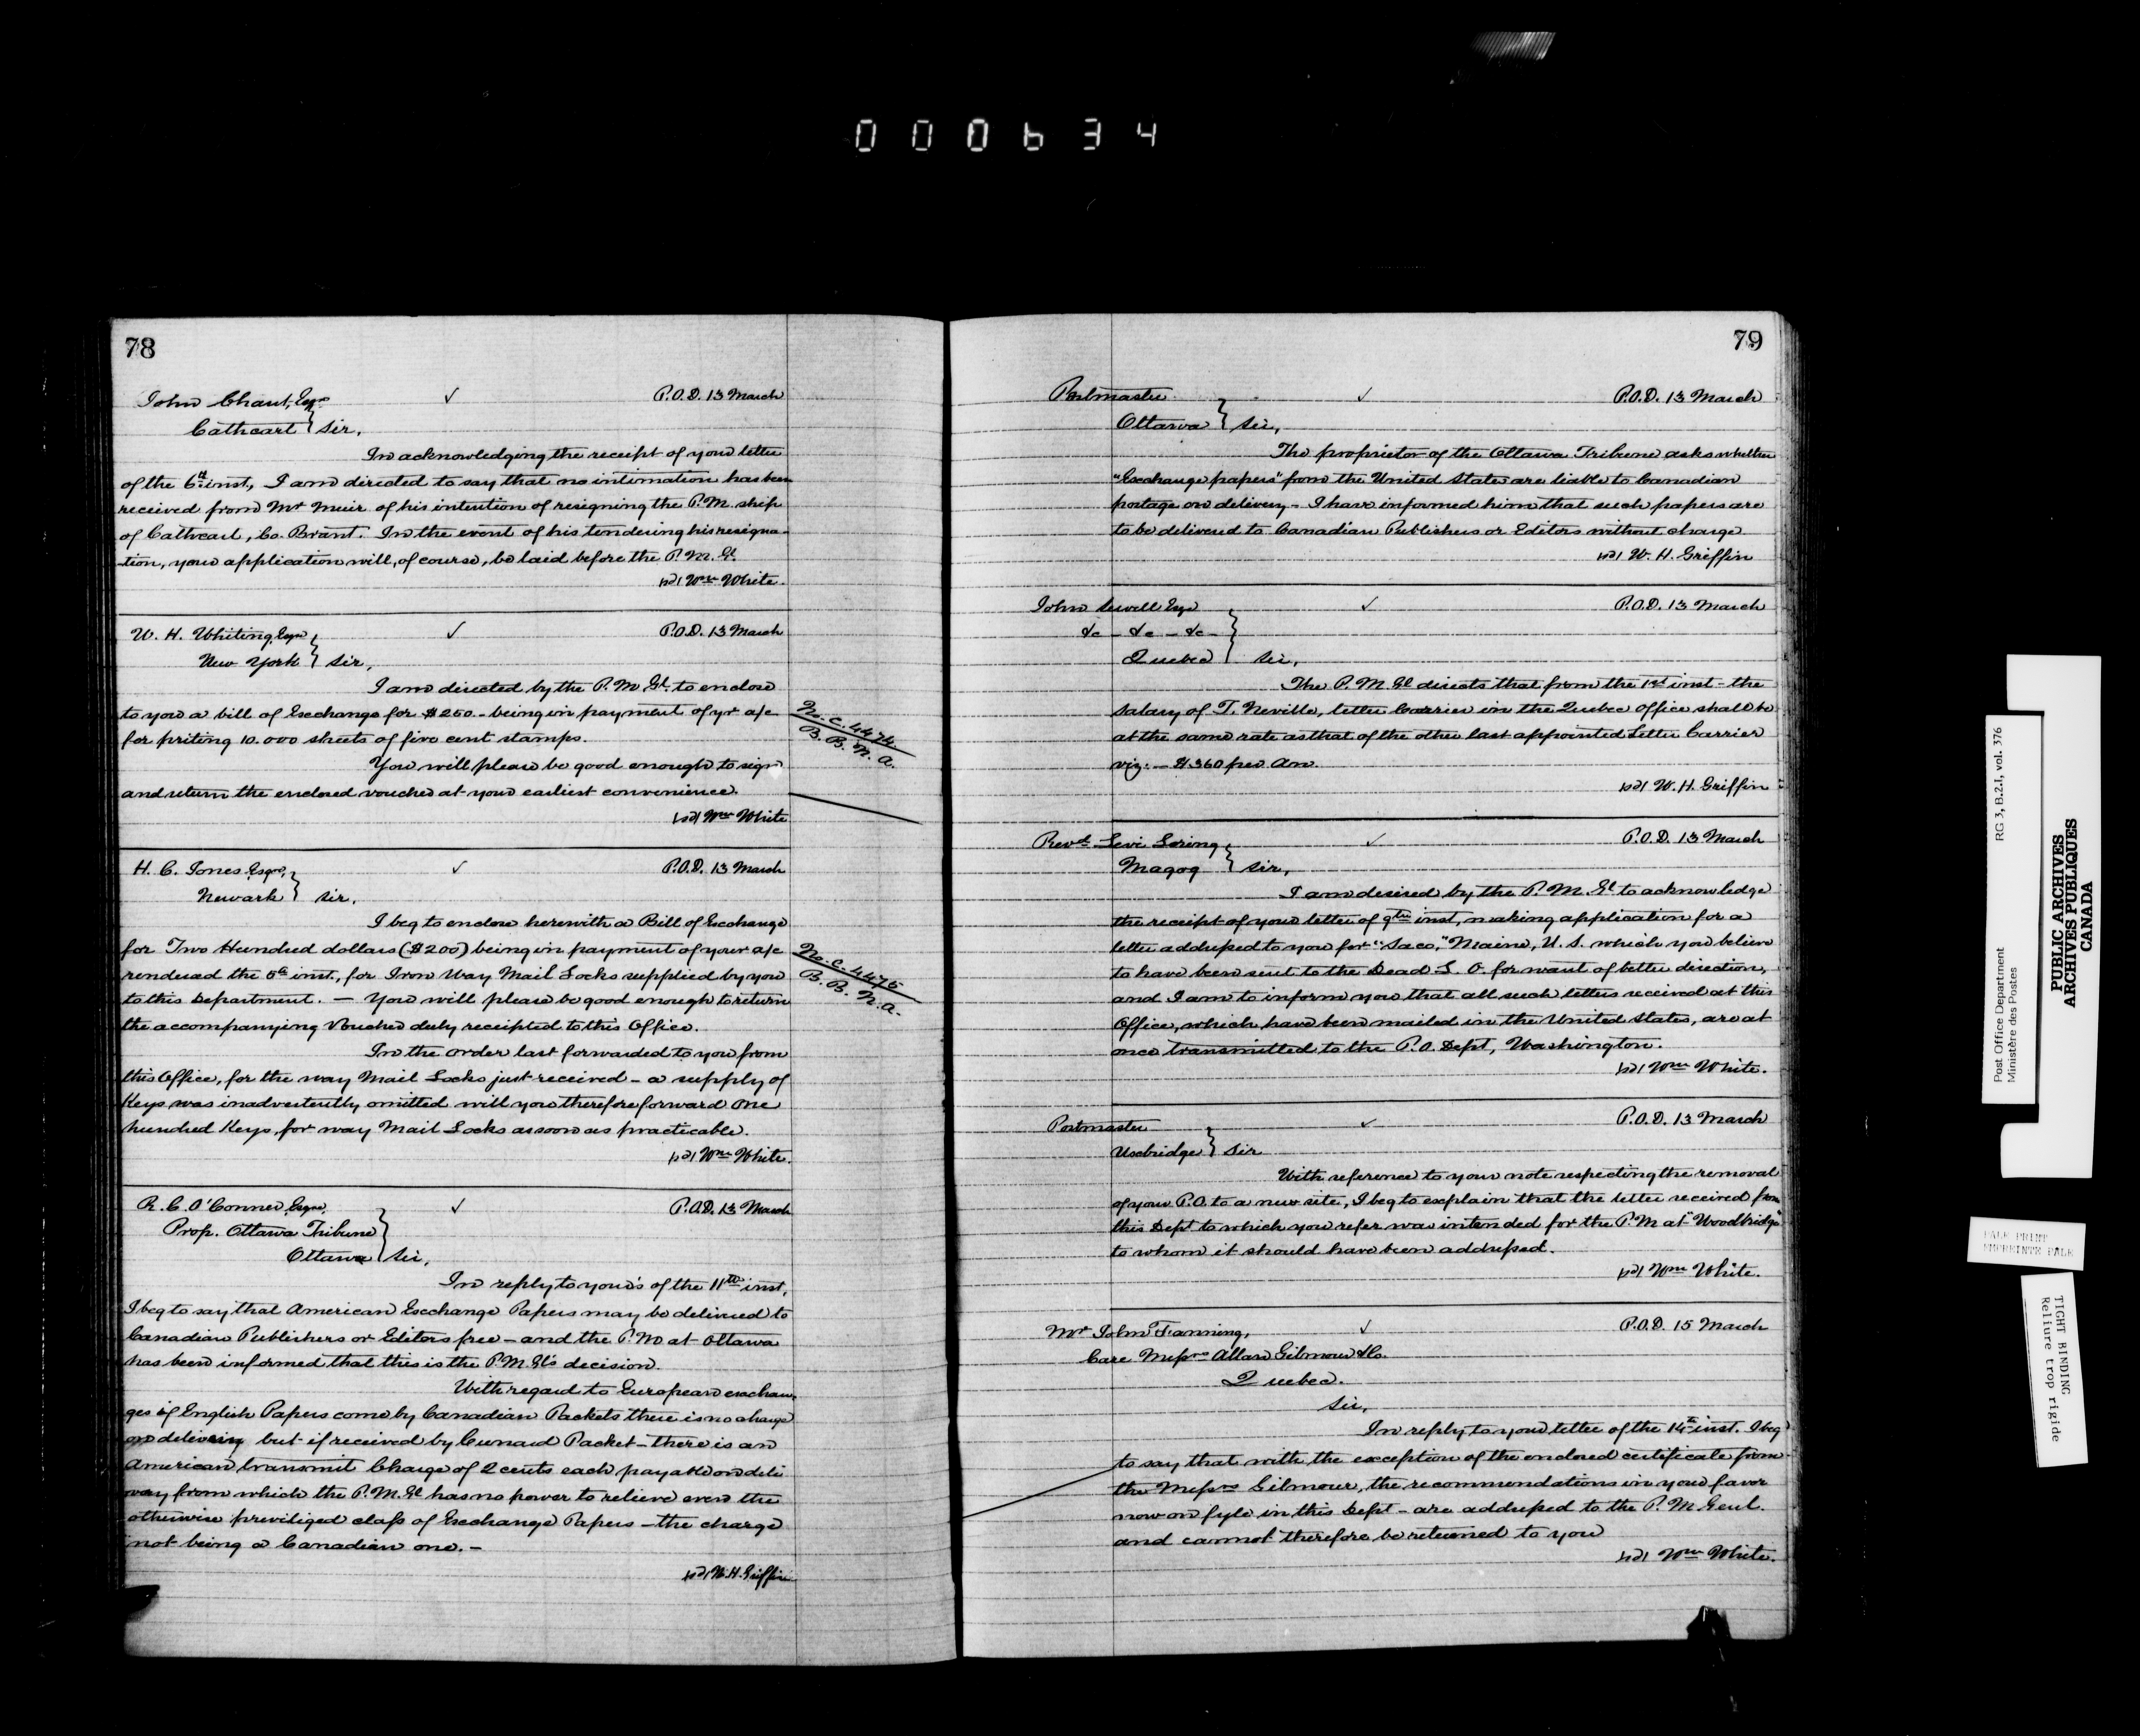 000634
78
John Chant, Esqre ✓ P.O.D. 13 March
Cathcart } Sir,
In acknowledging the receipt of your letter
of the 6th inst., I am directed to say that no intimation has been
received from Mr Muir of his intention of resigning the P.M. ship
of Cathcart, Co. Brant. In the event of his tendering his resigna-
-tion, your application will, of course, be laid before the P.M. Gl
sd/ Wm White.
W. H. Whiting, Esqre ✓ P.O.D. 13 March
New York } Sir,
I am directed by the P.M Gl. to enclose
to you a bill of Exchange for $250 - being in payment of yr a/c
for priting 10.000 sheets of five cent stamps.
No. C. 4474
B. B. N. A.
You will please be good enough to sign
and return the enclosed voucher at your earliest convenience.
sd/ Wm White
H. C. Jones Esqre, ✓ P.O.D. 13 March
Newark } Sir,
I beg to enclose herewith a Bill of Exchange
for Two Hundred dollars ($200) being in payment of your a/c
rendered the 5th inst., for Iron Way Mail Locks supplied by you
to this Department. — You will please be good enough to return
the accompanying Voucher duly receipted to this Office.
No. C. 4475
B. B. N. A.
In the order last forwarded to you from
this Office, for the way Mail Locks just received - a supply of
Keys was inadvertently omitted will you therefore forward One
hundred Keys for way Mail Locks as soon as practicable.
sd/ Wm White.
R. C. O'Connor, Esqre, ✓ P.O.D. 13 March
Prop. Ottawa Tribune
Ottawa } Sir,
In reply to your's of the 11th inst,
I beg to say that American Exchange Papers may be delivered to
Canadian Publishers or Editors free - and the P.M at Ottawa
has been informed that this is the P.M.Gl's decision.
With regard to European exchan-
ges if English Papers come by Canadian Packets there is no charge
on delivery but if received by Cunard Packet - there is an
American transmit Charge of 2 cents each payable on deli
very from which the P.M.Gl has no power to relieve even the
otherwise previliged class of Exchange Papers - the charge
not being a Canadian one. -
sd/ W.H. Griffin
79
Postmaster ✓ P.O.D. 13 March
Ottawa } Sir,
The proprietor of the Ottawa Tribune asks whether
"Exchange papers" from the United States are liable to Canadian
postage on delivery - I have informed him that such papers are
to be delivered to Canadian Publishers or Editors without charge
sd/ W. H. Griffin
John Sewell Esqr ✓ P.O.D. 13 March
&c - &c - &c -
Quebec } Sir,
The P.M. Gl directs that from the 1st inst - the
salary of T. Neville, letter Carrier in the Quebec Office shall be
at the same rate as that of the other last appointed Letter Carrier
viz. - $360 per. An.
sd/ W. H. Griffin
Revd. Levi Loring, ✓ P.O.D. 13 March
Magog } Sir,
I am desired by the P.M. Gl to acknowledge
the receipt of your letter of 9th inst, making application for a
letter addressed to you for "Saco," Maine, U.S. which you believe
to have been sent to the Dead L. O. for want of better direction,
and I am to inform you that all such letters received at this
Office, which have been mailed in the United States, are at
once transmitted to the P.O. Dept, Washington.
sd/ Wm White.
Postmaster ✓ P.O.D. 13 March
Uxbridge } Sir
With reference to your note respecting the removal
of your P.O. to a new site, I beg to explain that the letter received from
this Dept to which you refer was intended for the P.M at "Woodbridge"
to whom it should have been addressed.
sd/ Wm White.
Mr John Fanning, ✓ P.O.D. 15 March
Care Messrs Allan Gilmour & Co.
Quebec.
Sir,
In reply to your letter of the 14th inst. I beg
to say that with the exception of the enclosed certificate from
the Messrs Gilmour, the recommendations in your favor
now on fyle in this Dept - are addressed to the P.M. Genl.
and cannot therefore be returned to you
sd/ Wm White.
Post Office Department RG 3, B.2.1, vol. 376
Ministère des Postes
PUBLIC ARCHIVES
ARCHIVES PUBLIQUES
CANADA
PALE PRINT
EMPREINTE PALE
TIGHT BINDING
Reliure trop rigide